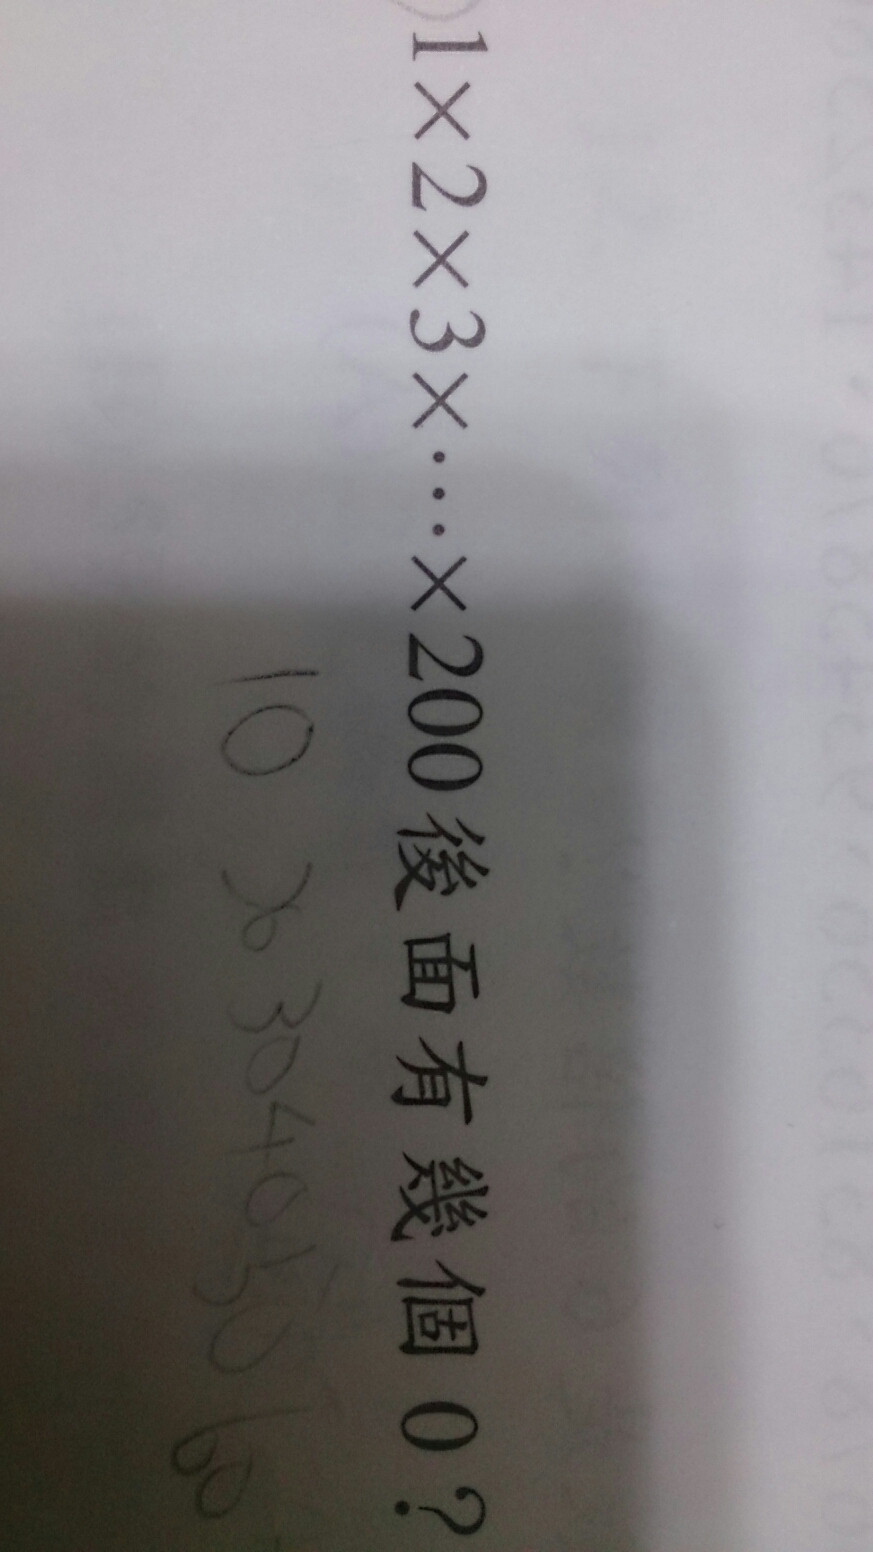 1×2×3×⋯×200後面有幾個0?
10 x 30 40 50 60